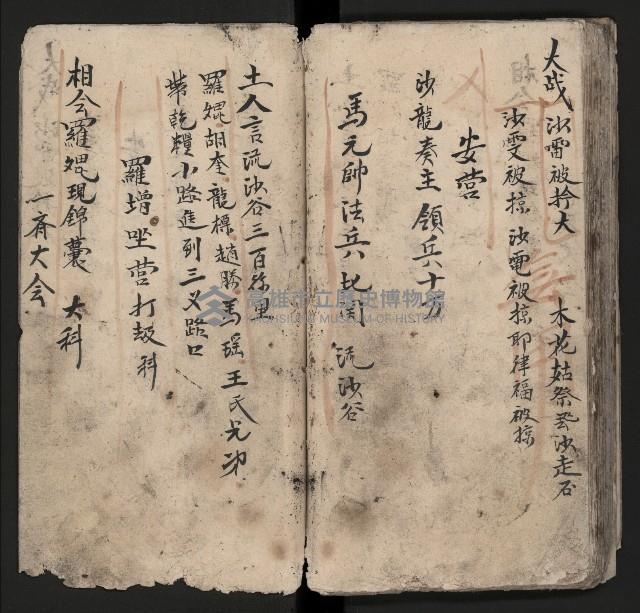 大战 沙雷被擒大 木花姑祭 沙走石
沙雯被掠 沙電被掠 耶律福被掠
安营
沙龍奏主 領兵十万
馬元帥法兵 北関 流沙谷
土人言流沙谷三百存里
羅焜 胡奎 龍標 趙勝 馬瑶 王氏兄弟
帶乾糧小路進到三叉路口
羅增坐营打刼科
相会羅焜現錦囊 大科
一齊大会
高雄市立歷史博物館
KAOHSIUNG MUSEUM OF HISTORY